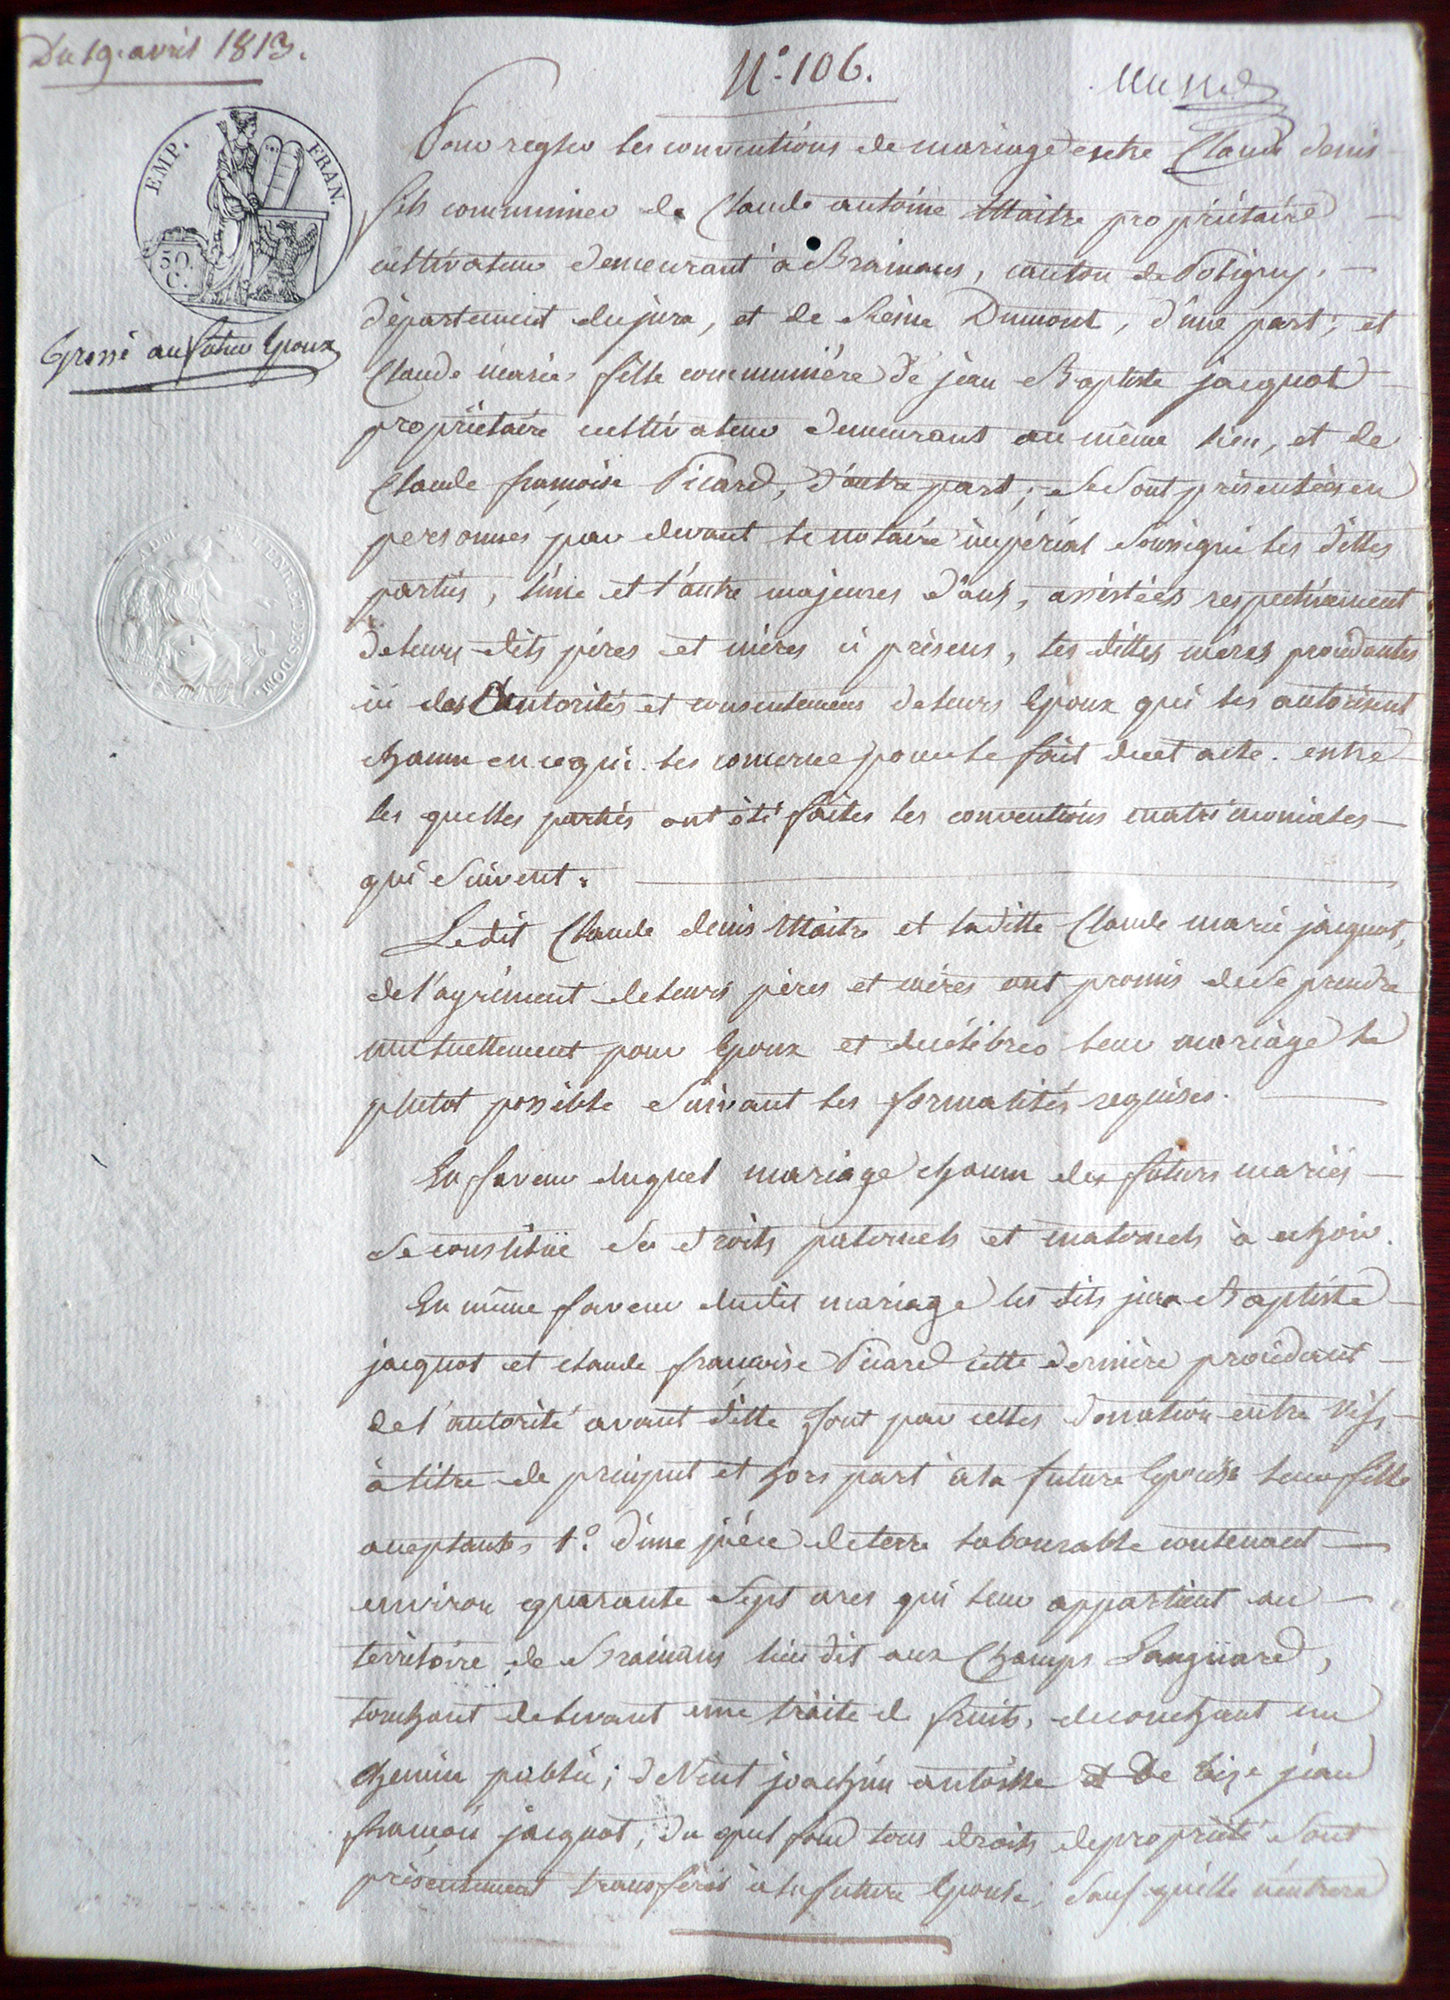 Du 19. avril 1813.
N.° 106.
EMP. FRAN.
50. C.
Grossé au futur Epoux
ADM. DE L'ENR. ET DES DOM.
Pour regler les conventions de mariage entre Claude denis
fils communier de Claude antoine Maitre propriétaire
cultivateur demeurant à Brainans, canton de Poligny,
département du jura, et de Reine Dumont, d'une part; et
Claude marie fille communière de jean Baptiste jacquot
propriétaire cultivateur demeurant au même lieu, et de
Claude françoise Picard, d'autre part; se sont présentées en
personnes par devant le notaire impérial soussigné les dittes
parties, l'une et l'autre majeures d'ans, assistées respectivement
de leurs dits pères et mères ci présens, les dittes mères procédantes
ici des autorités et consentemens de leurs Epoux qui les autorisent
chacun en ce qui les concerne pour le fait du et acte. entre
les quelles parties ont été faites les conventions matrimoniales
qui suivent.
Ledit Claude denis Maitre et laditte Claude marie jacquot,
de l'agrément de leurs pères et mères ont promis de se prendre
mutuellement pour Epoux et de célébrer leur mariage le
plutot possible suivant les formalités requises.
En faveur duquel mariage chacun des futurs mariés
se constitüe ses droits paternels et maternels à echoir.
En même faveur dudit mariage les dits jean Baptiste
jacquot et claude françoise Picard cette dernière procédant
de l'autorité avant ditte font par cettes donation entre vifs
à titre de préciput et hors part à la future Epouse leur fille
acceptante, 1.° d'une pièce de terre labourable contenant
environ quarante sept ares qui leur appartient au
territoire de Brainans lieu dit aux Champs Sanguard,
touchant de levant une traite de fruits, de couchant un
chemin public; de vent joachim antoine et de bize jean
françois jacquot; du quel fond tous droits de propriété sont
présentement transférés à la future Epouse, sauf qu'elle n'entrera